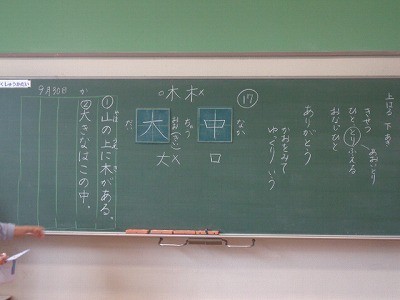 上はる 下あき
きせつ
ひと とり ふえる
おなじひと
ありがとう
かおをみて
ゆっくりいう
⑰
なか
中
ちゅう
口
○木 木×
大
だい
大×
①山の上に木がある。
②大きなはこの中。
9月30日 か
くしゅうかだい